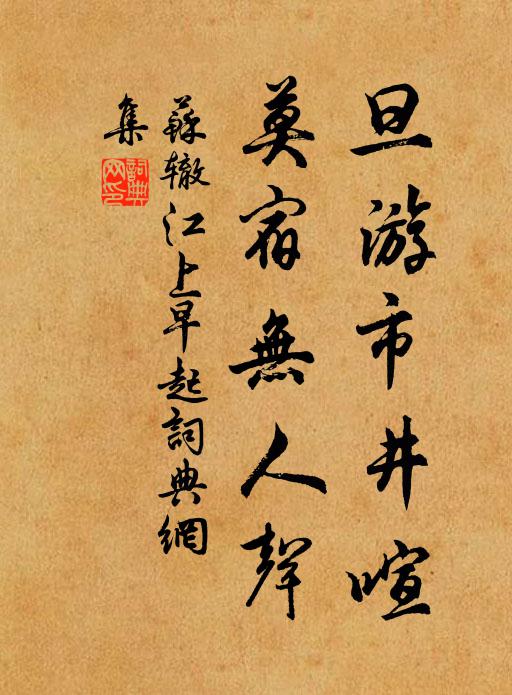 旦游市井喧
莫宿無人聲
蘇辙江上早起詞典網
集
詞典
网印